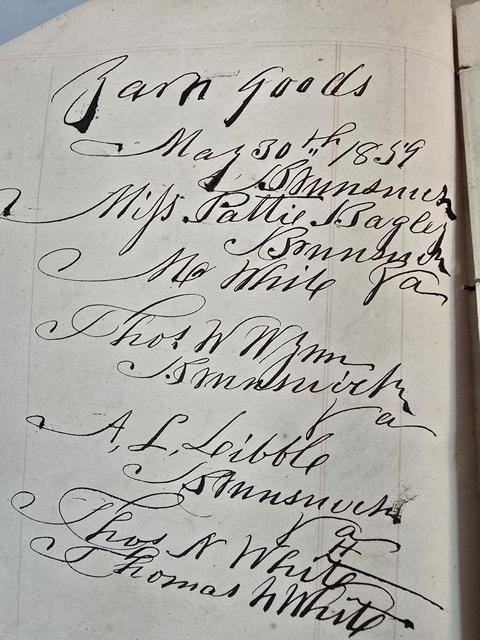 Barn Goods
May 30th 1859
Brunswick
Miss Pattie Bagley
Brunswick
Mc White Va
Thos W Wynn
Brunswick
Va
A, L, Leibble
Brunswick
Va
Thos N White
Thomas N White